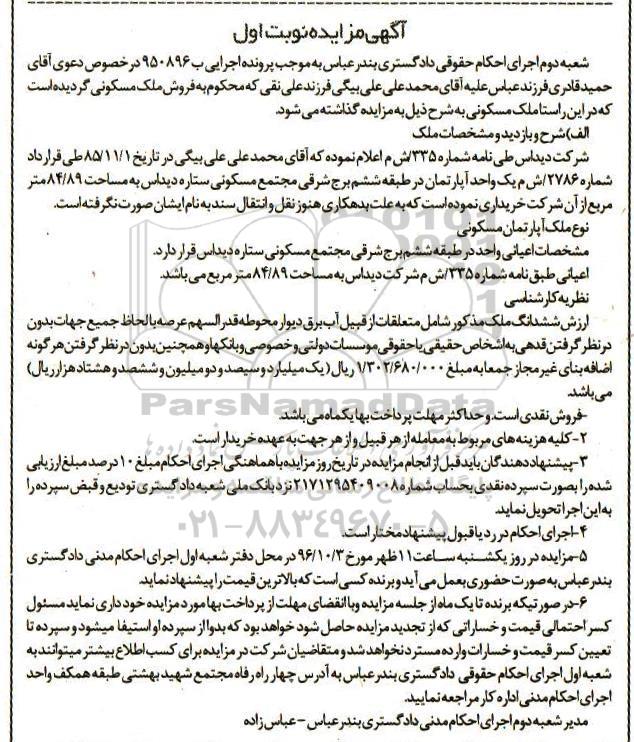 آگهی مزایده نوبت اول
شعبه دوم اجرای احکام حقوقی دادگستری بندرعباس به موجب پرونده اجرایی ب ۹۵۰۸۹۶ در خصوص دعوی آقای
حمید قادری فرزند عباس علیه آقای محمد علی علی بیگی فرزند علی نقی که محکوم به فروش ملک مسکونی گردیده است
که در این راستا ملک مسکونی به شرح ذیل به مزایده گذاشته می شود.
الف) شرح و بازدید و مشخصات ملک
شرکت دیداس طی نامه شماره ۳۳۵/ش م اعلام نموده که آقای محمد علی علی بیگی در تاریخ ۸۵/۱۱/۱ طی قرار داد
شماره ۲۷۸۶/ش م یک واحد آپارتمان در طبقه ششم برج شرقی مجتمع مسکونی ستاره دیداس به مساحت ۸۴/۸۹ متر
مربع از آن شرکت خریداری نموده است که به علت بدهکاری هنوز نقل و انتقال سند به نام ایشان صورت نگرفته است.
نوع ملک آپارتمان مسکونی
مشخصات اعیانی واحد در طبقه ششم برج شرقی مجتمع مسکونی ستاره دیداس قرار دارد.
اعیانی طبق نامه شماره ۳۳۵/ش م شرکت دیداس به مساحت ۸۴/۸۹ متر مربع می باشد.
نظریه کارشناسی
ارزش ششدانگ ملک مذکور شامل متعلقات از قبیل آب برق دیوار محوطه قدرالسهم عرصه با لحاظ جمیع جهات بدون
در نظر گرفتن قدهی به اشخاص حقیقی یا حقوقی موسسات دولتی و خصوصی و بانکها و همچنین بدون در نظر گرفتن هر گونه
اضافه بنای غیر مجاز جمعا به مبلغ ۱/۳۰۲/۶۸۰/۰۰۰ ریال (یک میلیارد و سیصد و دو میلیون و ششصد و هشتاد هزار ریال)
می باشد.
-فروش نقدی است. و حداکثر مهلت پرداخت بها یکماه می باشد.
۲-کلیه هزینه های مربوط به معامله از هر قبیل و از هر جهت به عهده خریدار است.
۳-پیشنهاد دهندگان باید قبل از انجام مزایده در تاریخ روز مزایده با هماهنگی اجرای احکام مبلغ ۱۰ درصد مبلغ ارزیابی
شده را بصورت سپرده نقدی بحساب شماره ۲۱۷۱۲۹۵۴۰۹۰۰۸ نزد بانک ملی شعبه دادگستری تودیع و قبض سپرده را
به این اجرا تحویل نماید.
۴-اجرای احکام در رد یا قبول پیشنهاد مختار است.
۵-مزایده در روز یکشنبه ساعت ۱۱ ظهر مورخ ۹۶/۱۰/۳ در محل دفتر شعبه اول اجرای احکام مدنی دادگستری
بندرعباس به صورت حضوری بعمل می آید و برنده کسی است که بالاترین قیمت را پیشنهاد نماید.
۶-در صورتیکه برنده تا یک ماه از جلسه مزایده و با انقضای مهلت از پرداخت بها مورد مزایده خودداری نماید مسئول
کسر احتمالی قیمت و خساراتی که از تجدید مزایده حاصل شود خواهد بود که بدوا از سپرده او استیفا میشود و سپرده تا
تعیین کسر قیمت و خسارات وارده مسترد نخواهد شد و متقاضیان شرکت در مزایده برای کسب اطلاع بیشتر میتوانند به
شعبه اول اجرای احکام حقوقی دادگستری بندرعباس به آدرس چهار راه رفاه مجتمع شهید بهشتی طبقه همکف واحد
اجرای احکام مدنی اداره کار مراجعه نمایید.
مدیر شعبه دوم اجرای احکام مدنی دادگستری بندرعباس - عباس زاده
ParsNamadData
۰۲۱-۸۸۳۴۹۶۷۰-۵